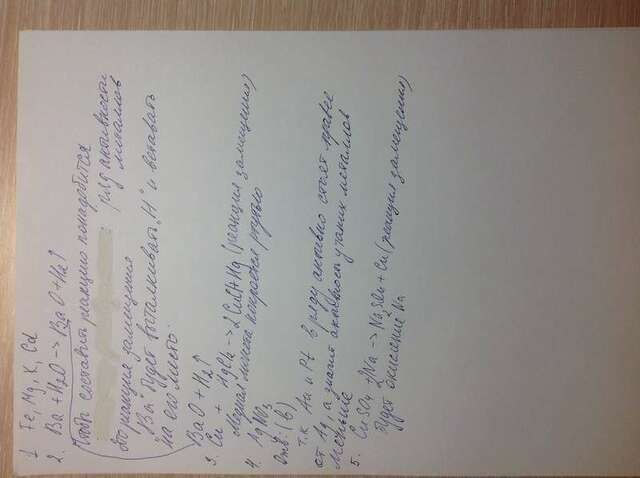 1 Fe, Mg, K, Cd
2. Ba + H2O -> BaO + H2↑
Чтобы составить реакцию понадобится
ряд активности
металлов
Это реакция замещения
"Ba" будет выталкивать "H" и вставать
на его место.
BaO + H2↑
3. Cu + HgCl2 -> 2 CuCl + Hg (реакция замещения)
Медная монета покроется ртутью
4. AgNO3
Отв: (в)
т.к Au и Pt в ряду активно стоят правее
от Ag, а значит активность у таких металлов
меньше
5. CuSO4 + 2Na -> Na2SO4 + Cu (реакция замещения)
будет окисление Na